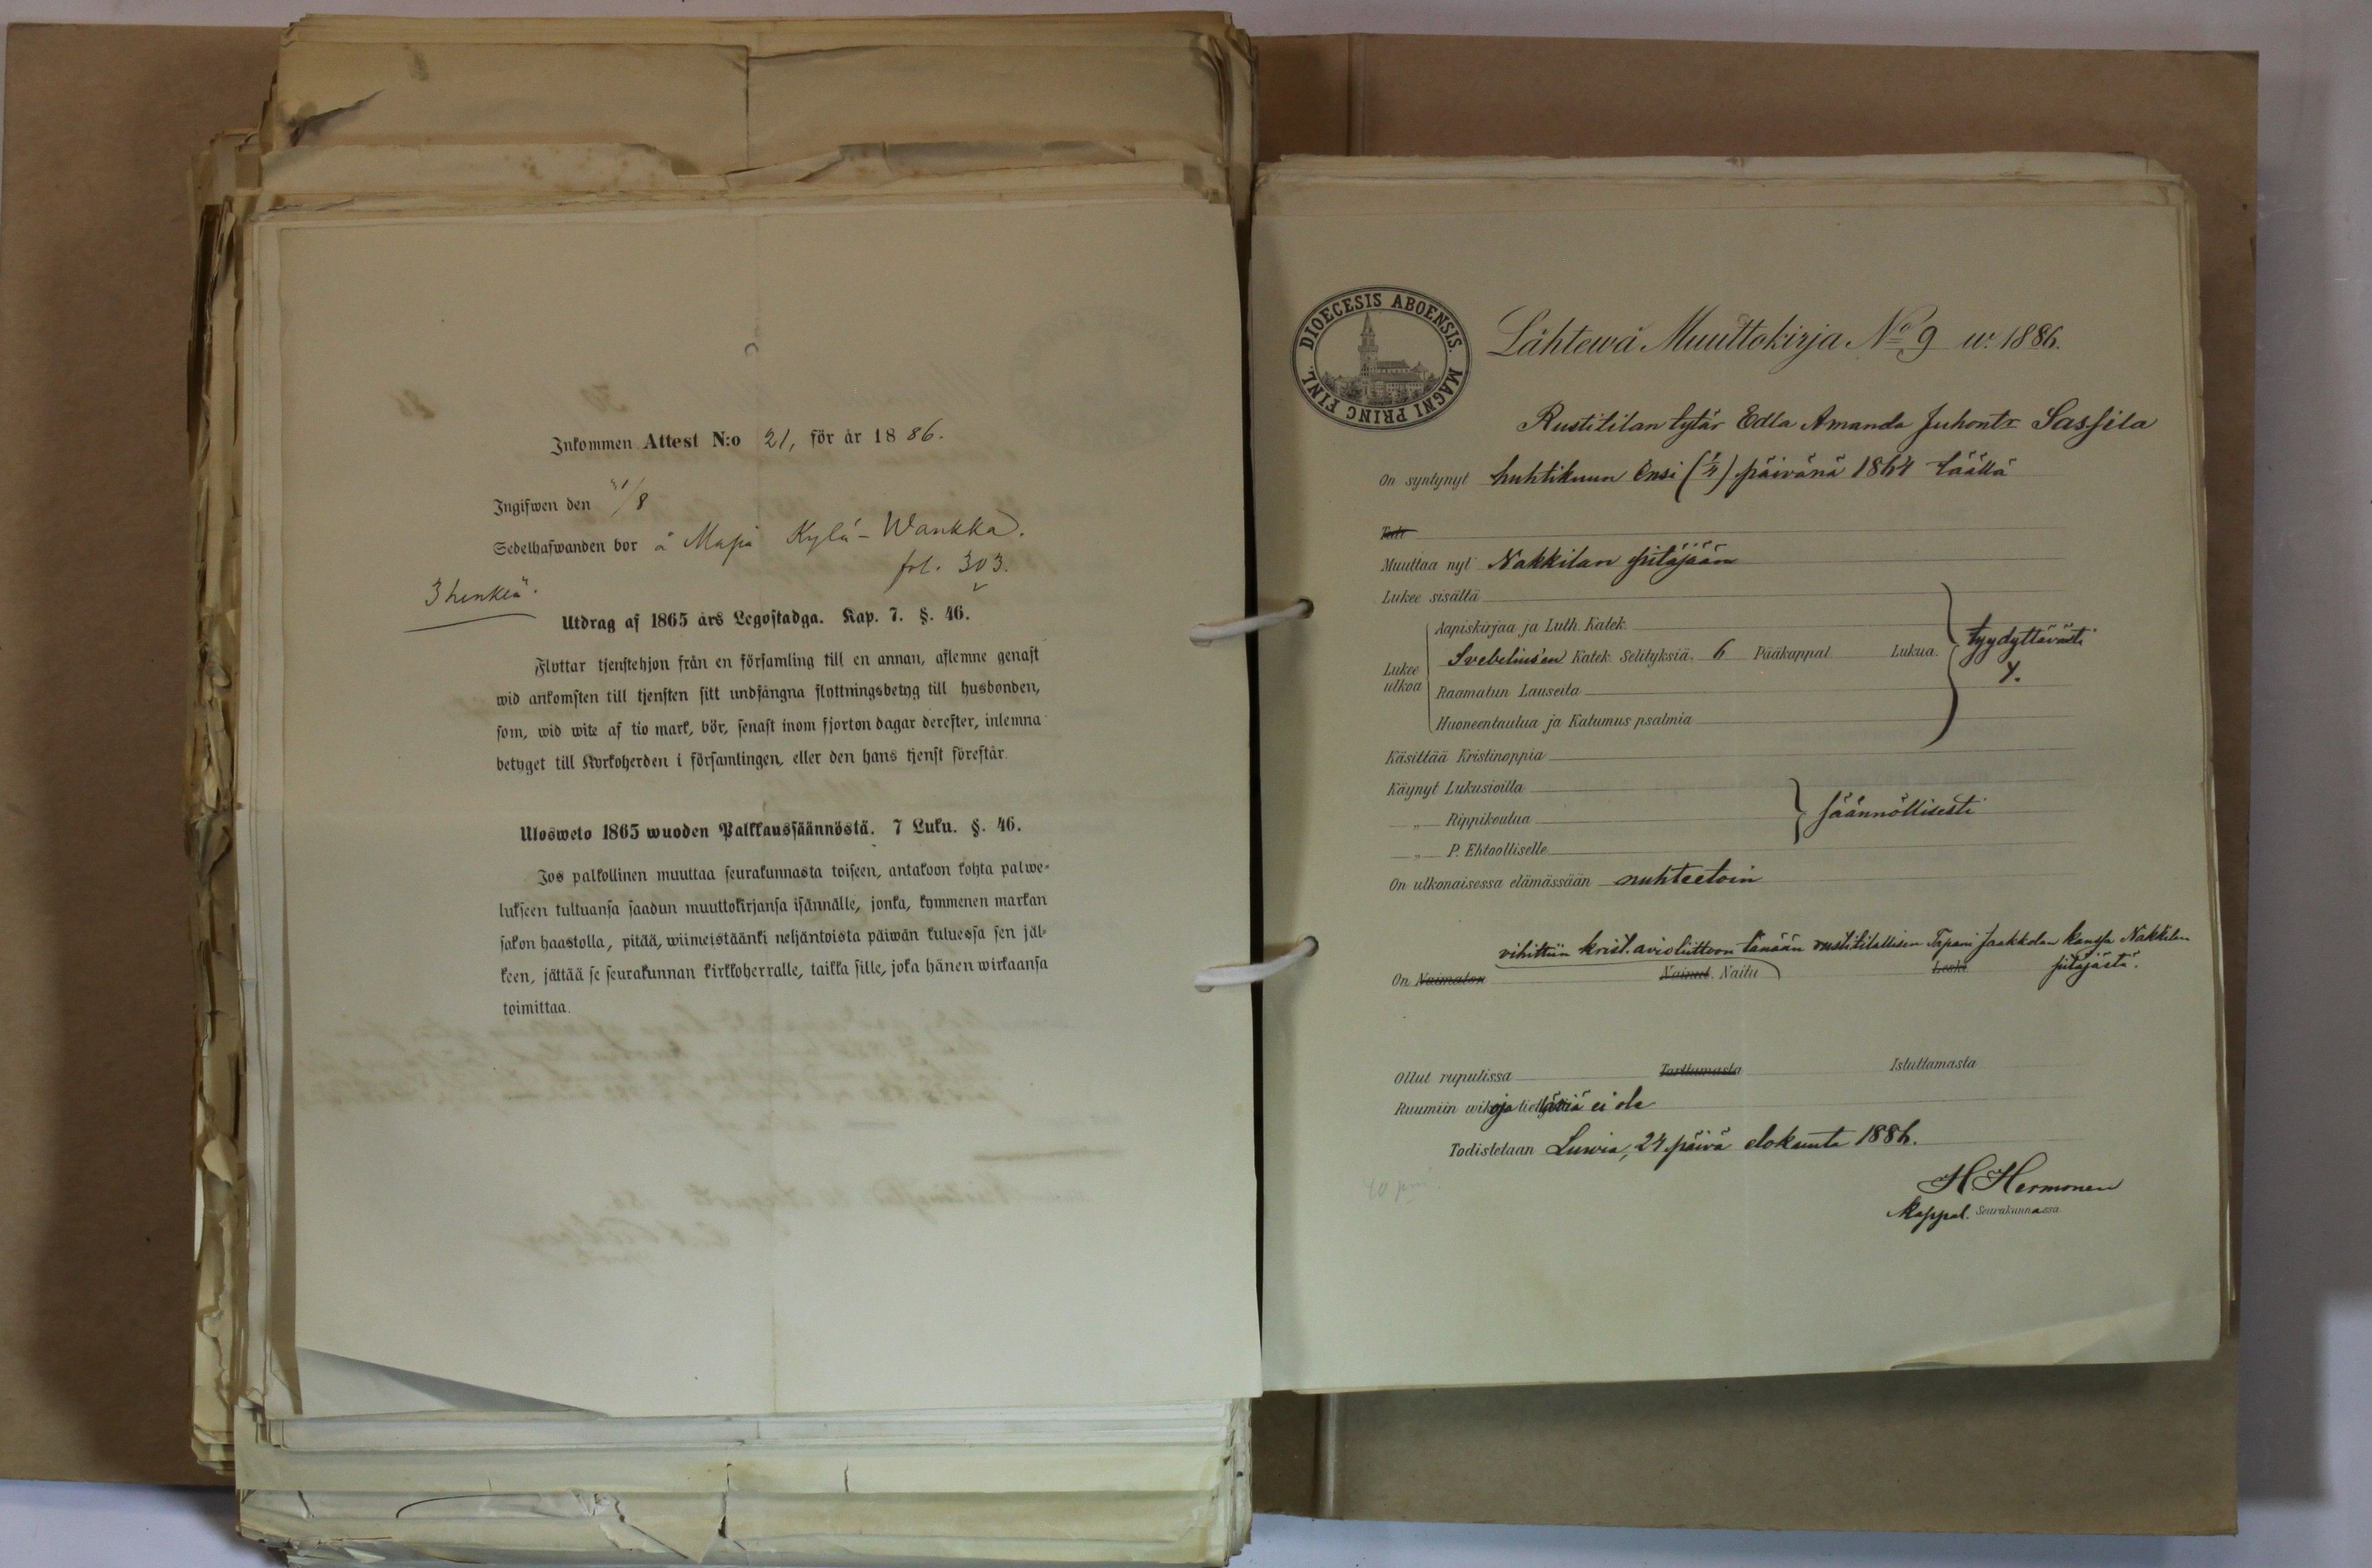 Inkommen Attest N:o 21, för år 1886.
Ingifwen den 31/8
Sedelhafwanden bor å Maja Kylä-Wankka.
fol. 303.
3 henkeä.
Utdrag af 1865 års Legostadga. Kap. 7. §. 46.
Flyttar tjenstehjon från en församling till en annan, aflemne genast
wid ankomsten till tjensten sitt undfångna flyttningsbetyg till husbonden,
som, wid wite af tio mark, bör, senast inom fjorton dagar derefter, inlemna
betyget till Kyrkoherden i församlingen, eller den hans tjenst förestår.
Uloswelo 1865 wuoden Palkkaussäännöstä. 7 Luku. §. 46.
Jos palkollinen muuttaa seurakunnasta toiseen, antakoon kohta palwe-
lukseen tultuansa saadun muuttokirjansa isännälle, jonka, kymmenen markan
sakon haastolla, pitää, wiimeistäänki neljäntoista päiwän kuluessa sen jäl-
keen, jättää se seurakunnan kirkkoherralle, taikka sille, joka hänen wirkaansa
toimittaa.
DIOECESIS ABOENSIS. MAGNI PRINC FINL.
Lähtewä Muuttokirja No 9 w. 1886.
Rustitilan tytär Edla Amanda Juhontr Sassila
On syntynyt huhtikuun Ensi (1/4) päivänä 1864 täällä
Tuli
Muuttaa nyt Nakkilan pitäjään
Lukee sisältä
Aapiskirjaa ja Luth. Katek.
Lukee ulkoa Svebelius'en Katek. Selityksiä. 6 Pääkappal Lukua. tyydyttävästi
Raamatun Lauseita
Huoneentaulua ja Katumus psalmia
Käsittää Kristinoppia
Käynyt Lukusioilla
„ Rippikoulua säännöllisesti
„ P. Ehtoolliselle
On ulkonaisessa elämässään nuhteetoin
vihittiin krist. avioliittoon tänään rustitilallisen Tapani Jaakkolan kanssa Nakkilan
pitäjästä.
On Naimaton Nainut. Naitu Leski
Ollut rupulissa Tarttumasta Istuttamasta
Ruumiin wikoja tiettäviä ei ole
Todistetaan Luvia, 24 päivä elokuuta 1886.
H Hermonen
Kappal. Seurakunnassa